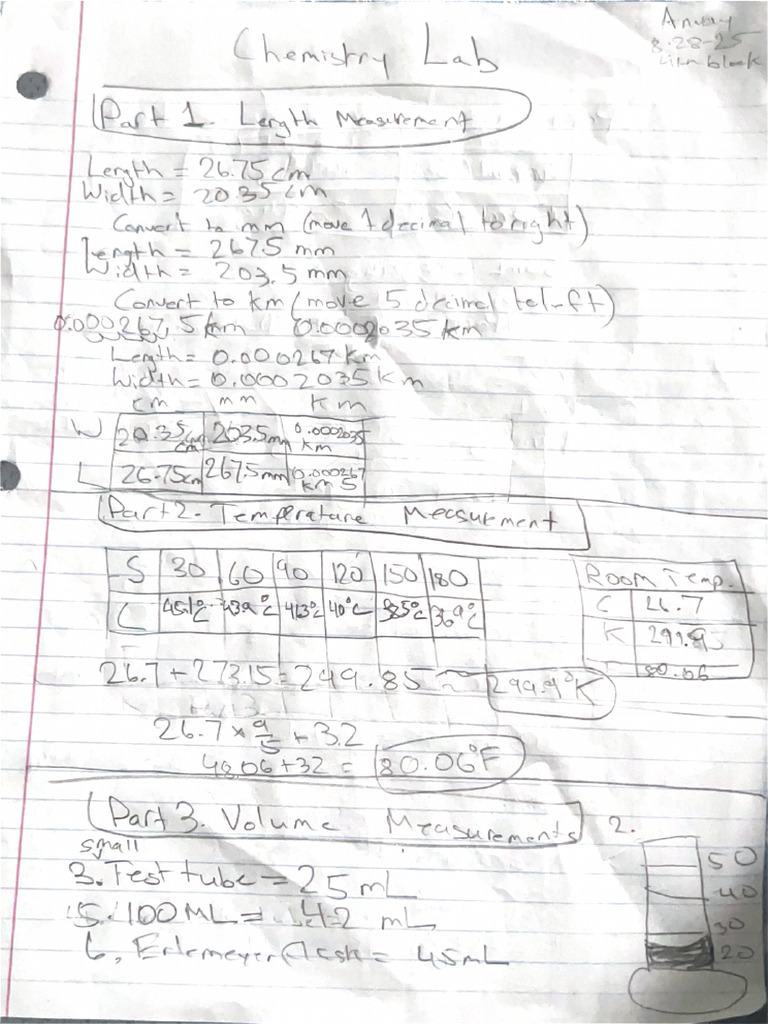 Chemistry Lab
8-28-25
Part 1. Length Measurement
Length = 26.75 cm
Width = 20.35 cm
Convert to mm (move 1 decimal to right)
Length = 267.5 mm
Width = 203.5 mm
Convert to km (move 5 decimal to left)
0.000267.5 km 0.0002035 km
Length = 0.000267 Km
Width = 0.0002035 Km
cm mm Km
W 20.35 cm 203.5 mm 0.0002035 km
L 26.75 cm 267.5 mm 0.000267 km 5
Part 2. Temperature Measurment
S 30 60 90 120 150 180
C 45.1°C 43.9°C 41.3°C 40°C 38.5°C 36.9°C
Room Temp.
C 26.7
K 299.85
80.06
26.7 + 273.15 = 249.85 ≈ 299.9°K
26.7 × 9/5 + 32
48.06 + 32 = 80.06°F
Part 3. Volume Measurements
2.
50
40
30
20
small
3. Test tube = 25 mL
5. 100 ML = 42 mL
6. Erlemeyer flask = 45 mL